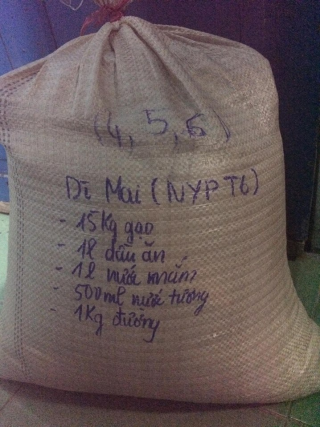 (4, 5, 6)
Dì Mai (NYP T6)
- 15Kg gạo
- 1l dầu ăn
- 1l nước mắm
- 500ml nước tương
- 1Kg đường